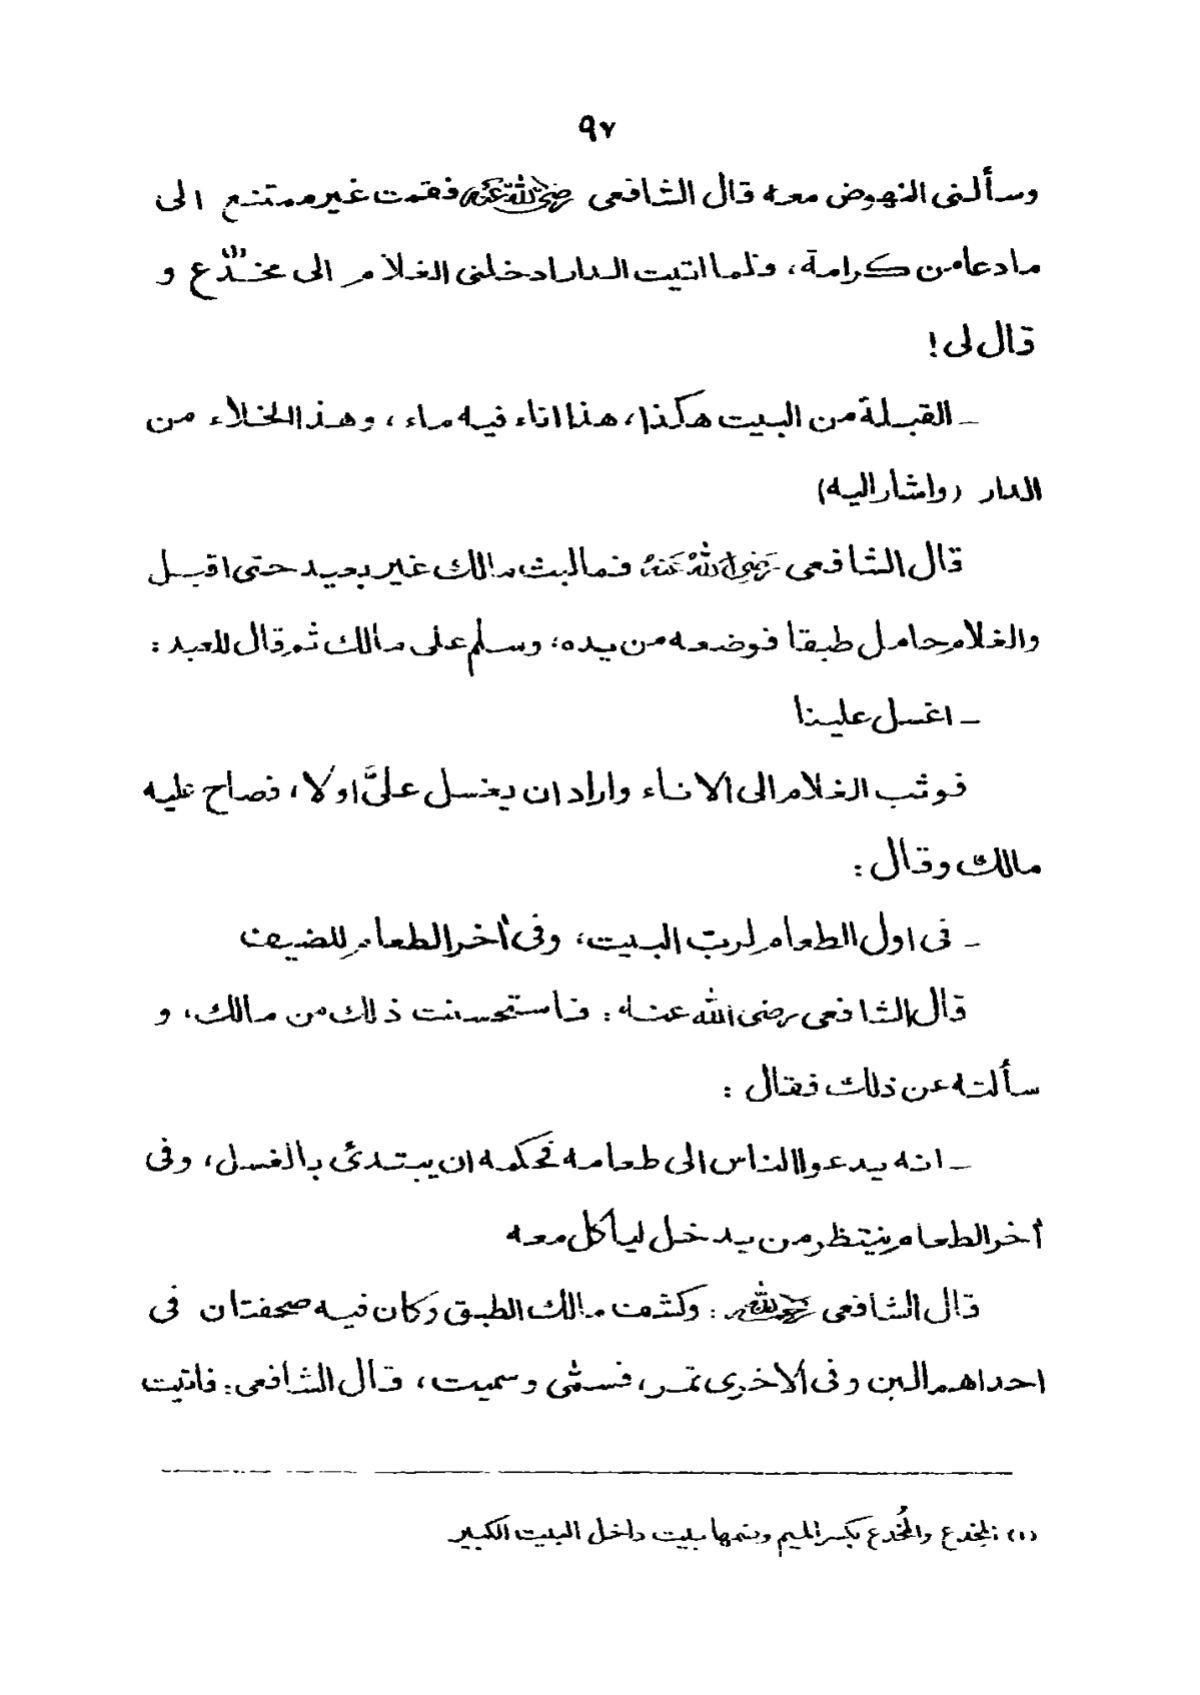 ٩٧
وسألنى النهوض معه قال الشافعى رضى الله عنه فقمت غير ممتنع الى
ما دعا من كرامة، فلما اتيت الدار ادخلنى الغلام الى مخدّع (١) و
قال لى !
ـ القبلة من البيت هكذا، هذا اناء فيه ماء ، وهذا الخلاء من
الدار (واشار اليه)
قال الشافعى رضى الله عنه فما لبث مالك غير بعيد حتى اقبل
والغلام حامل طبقا فوضعه من يده، وسلم على مالك ثم قال للعبد :
ـ اغسل علينا
فوثب الغلام الى الاناء واراد ان يغسل علىَّ اولا، فصاح عليه
مالك وقال :
ـ فى اول الطعام لربّ البيت، وفى أخر الطعام للضيف
قال الشافعى رضى الله عنه : فاستحسنت ذلك من مالك، و
سألته عن ذلك فقال :
ـ انه يدعوا الناس الى طعامه فحكمه ان يبتدئ بالغسل، وفى
أخر الطعام ينتظر من يدخل ليأكل معه
قال الشافعى رحمه الله : وكشف مالك الطبق وكان فيه صحفتان فى
احداهما لبن وفى ألاخرى تمر، فسمّى وسميت، قال الشافعى : فاتيت
(١) المِخدع والمُخدع بكسر الميم وضمها بيت داخل البيت الكبير